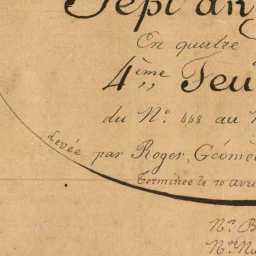 Sept an
En quatre
4ème Feui
du N° 448 au N
Levée par Roger, Géomè
Terminée le 10 avri
N.ta B
N.ta No